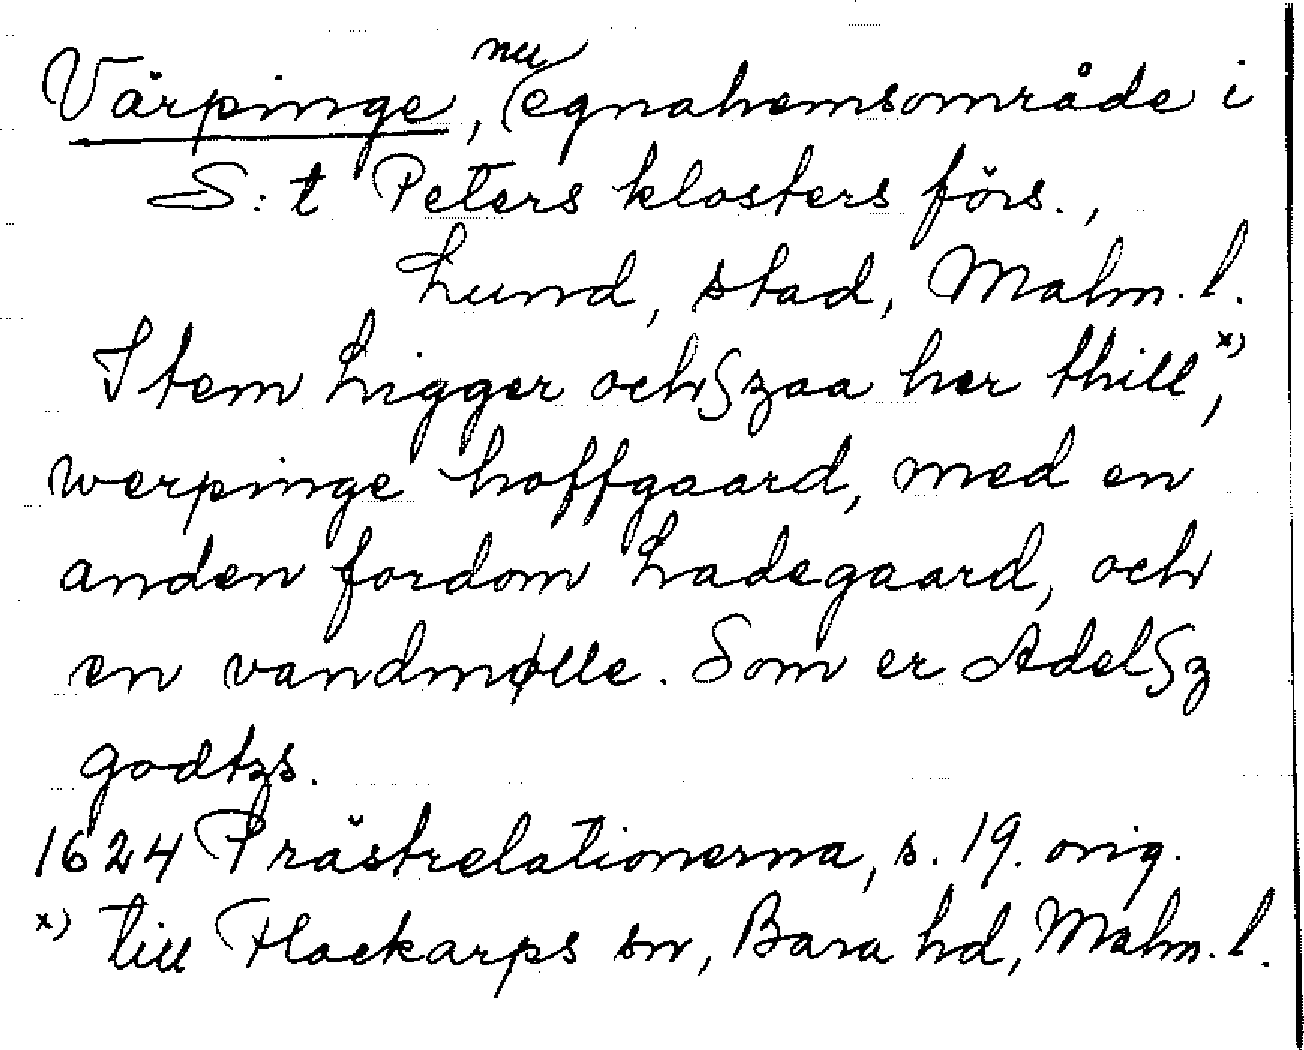 Värpinge, nu egnahemsområde i
S:t Peters klosters förs.,
Lund, stad, Malm. l.
Item Ligger ochſzaa her thill, x)
werpinge hoffgaard, med en
anden fordom Ladegaard, och
en vandmølle. Som er Adelſz
godtzs.
1624 Prästrelationerna, s. 19. orig.
x) till Flackarps sn, Bara hd, Malm. l.